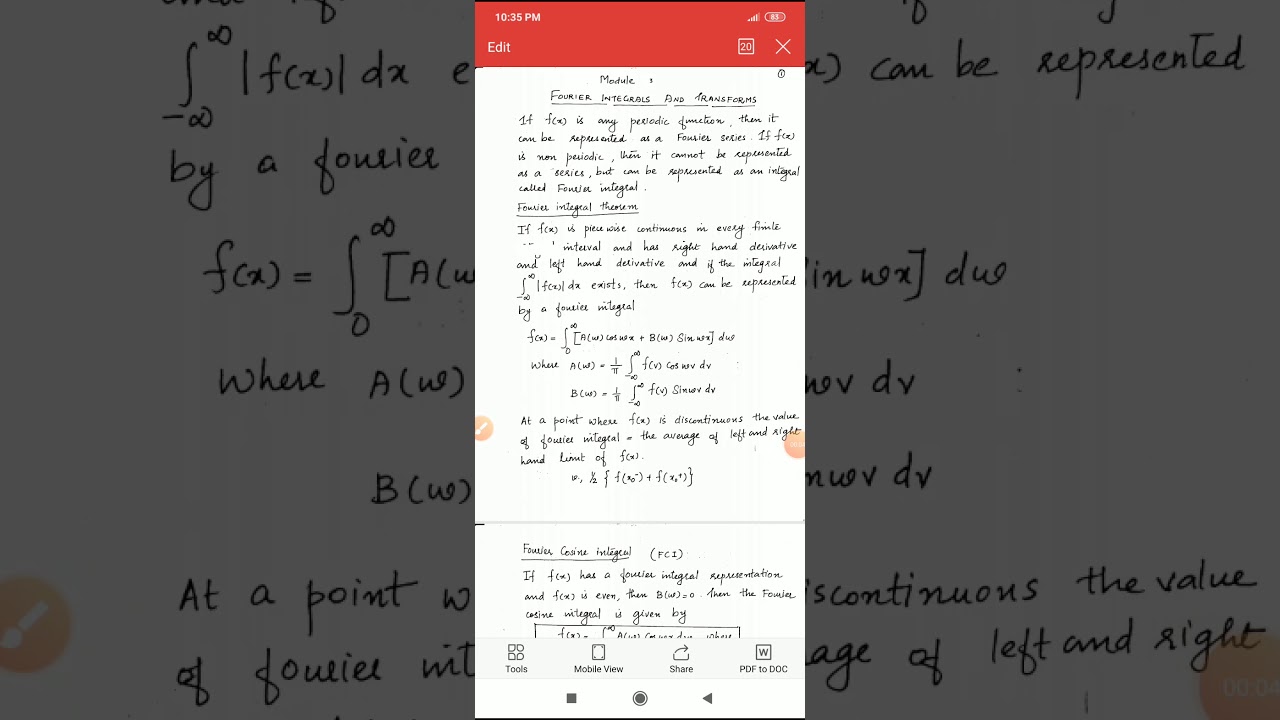 10:35 PM
83
Edit
20
Module 3
①
FOURIER INTEGRALS AND TRANSFORMS
If f(x) is any periodic function, then it
can be represented as a Fourier series. If f(x)
is non periodic, then it cannot be represented
as a series, but can be represented as an integral
called Fourier integral.
Fourier integral theorem
If f(x) is piecewise continuous in every finite
interval and has right hand derivative
and left hand derivative and if the integral
∫_{-∞}^{∞} |f(x)| dx exists, then f(x) can be represented
by a fourier integral
f(x) = ∫_0^∞ [A(w) cos wx + B(w) Sin wx] dw
Where A(w) = 1/π ∫_{-∞}^{∞} f(v) Cos wv dv
B(w) = 1/π ∫_{-∞}^{∞} f(v) Sin wv dv
At a point where f(x) is discontinuous the value
of fourier integral = the average of left and right
hand limit of f(x).
1/2 { f(x₀⁻) + f(x₀⁺) }
Fourier Cosine integral (FCI)
If f(x) has a fourier integral representation
and f(x) is even, then B(w) = 0. Then the Fourier
cosine integral is given by
f(x) = ∫^∞ A(w) Cos wx dw where
Tools
Mobile View
Share
W
PDF to DOC
∫_{-∞}^{∞} |f(x)| dx
x) can be represented
by a fourier
f(x) = ∫_0^∞ [A(w
in wx] dw
Where A(w)
wv dv
B(w)
nwv dv
At a point w
iscontinuous the value
of fourier int
age of left and right
00:04